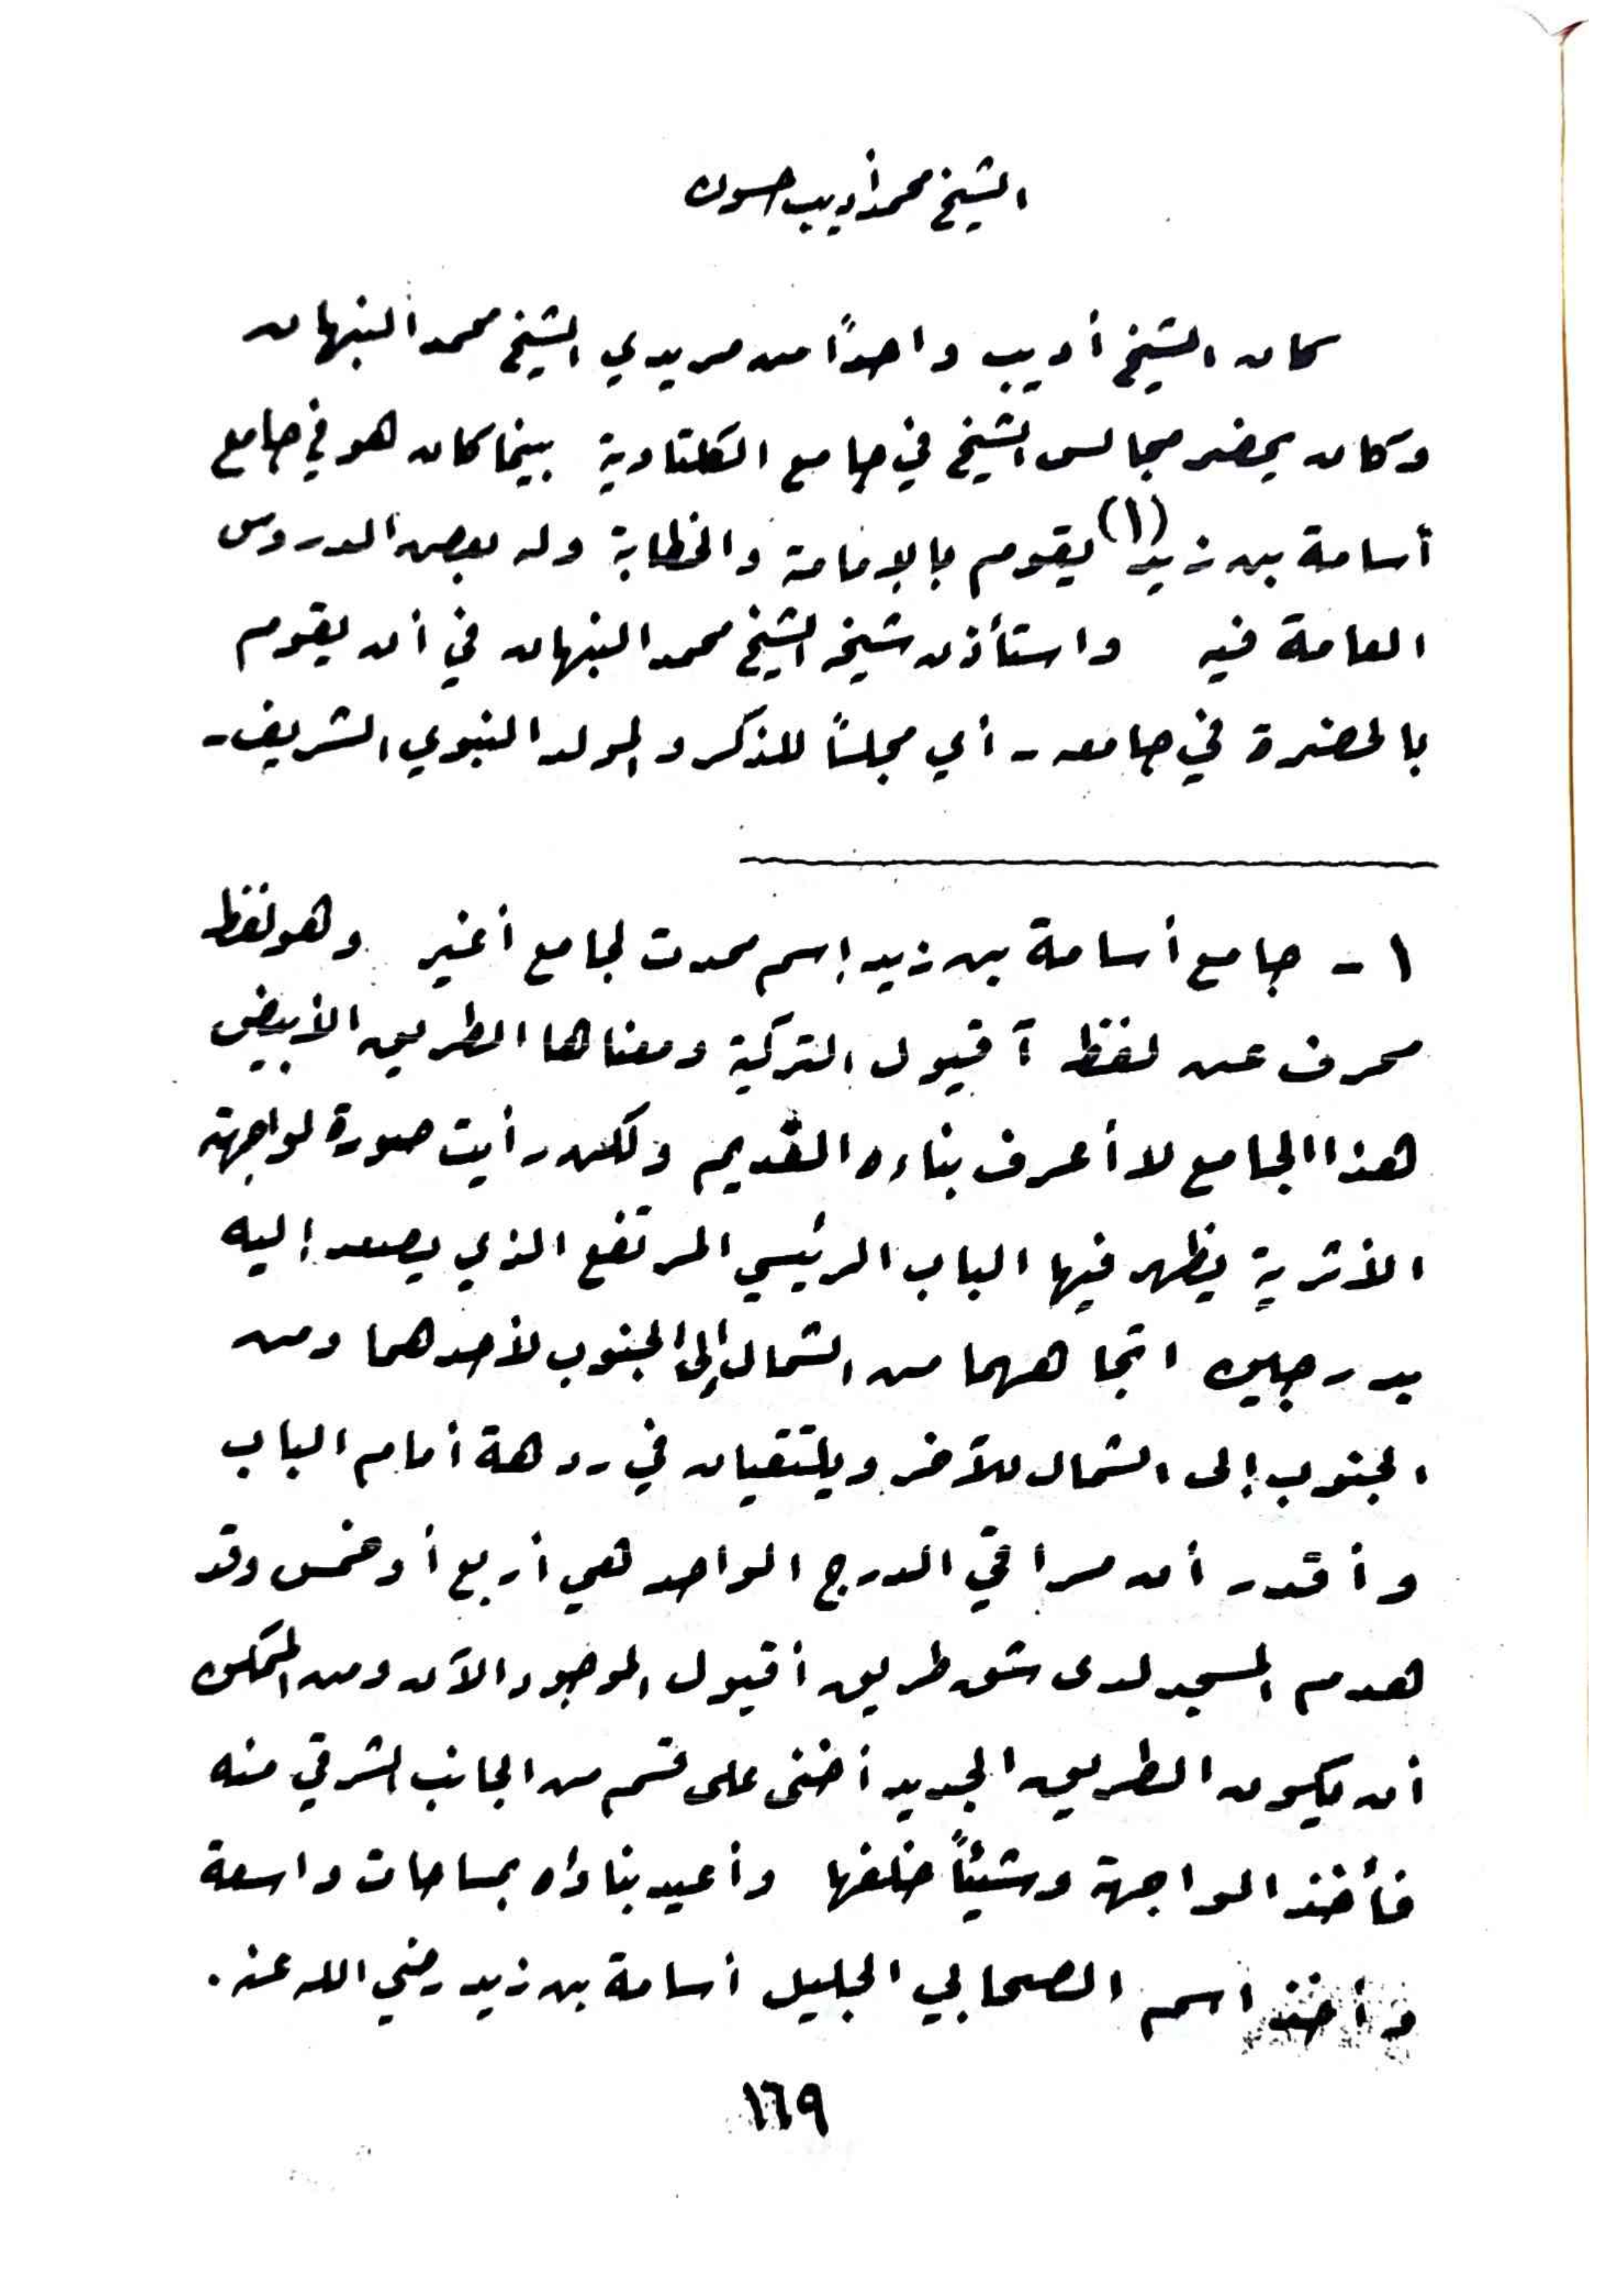 الشيخ محمد أديب حسون
كان الشيخ أديب واحداً من مريدي الشيخ محمد النبهان
وكان يحضر مجالس الشيخ في جامع الكلتاوية بينما كان هو في جامع
أسامة بن زيد (١) يقوم بالإمامة والخطابة وله بعض الدروس
العامة فيه واستأذن شيخه الشيخ محمد النبهان في أن يقوم
بالحضرة في جامعه - أي مجلساً للذكر والمولد النبوي الشريف -
١ - جامع أسامة بن زيد إسم محدث لجامع أغير وهو لفظ
محرف عن لفظ آقيول التركية ومعناها الطريق الأبيض
هذا الجامع لا أعرف بناءه القديم ولكن رأيت صورة لواجهته
الأثرية يظهر فيها الباب الرئيسي المرتفع الذي يصعد إليه
بدرجين اتجاههما من الشمال إلى الجنوب لأحدهما ومن
الجنوب إلى الشمال للآخر ويلتقيان في ردهة أمام الباب
وأقدر أن مراقي الدرج الواحد هي أربع أو خمس وقد
هدم المسجد لدى شق طريق أقيول الموجود الآن ومن الممكن
أن يكون الطريق الجديد أخنى على قسم من الجانب الشرقي منه
فأخذ الواجهة وشيئاً خلفها وأعيد بناؤه بمساحات واسعة
وأخذ اسم الصحابي الجليل أسامة بن زيد رضي الله عنه.
١٦٩